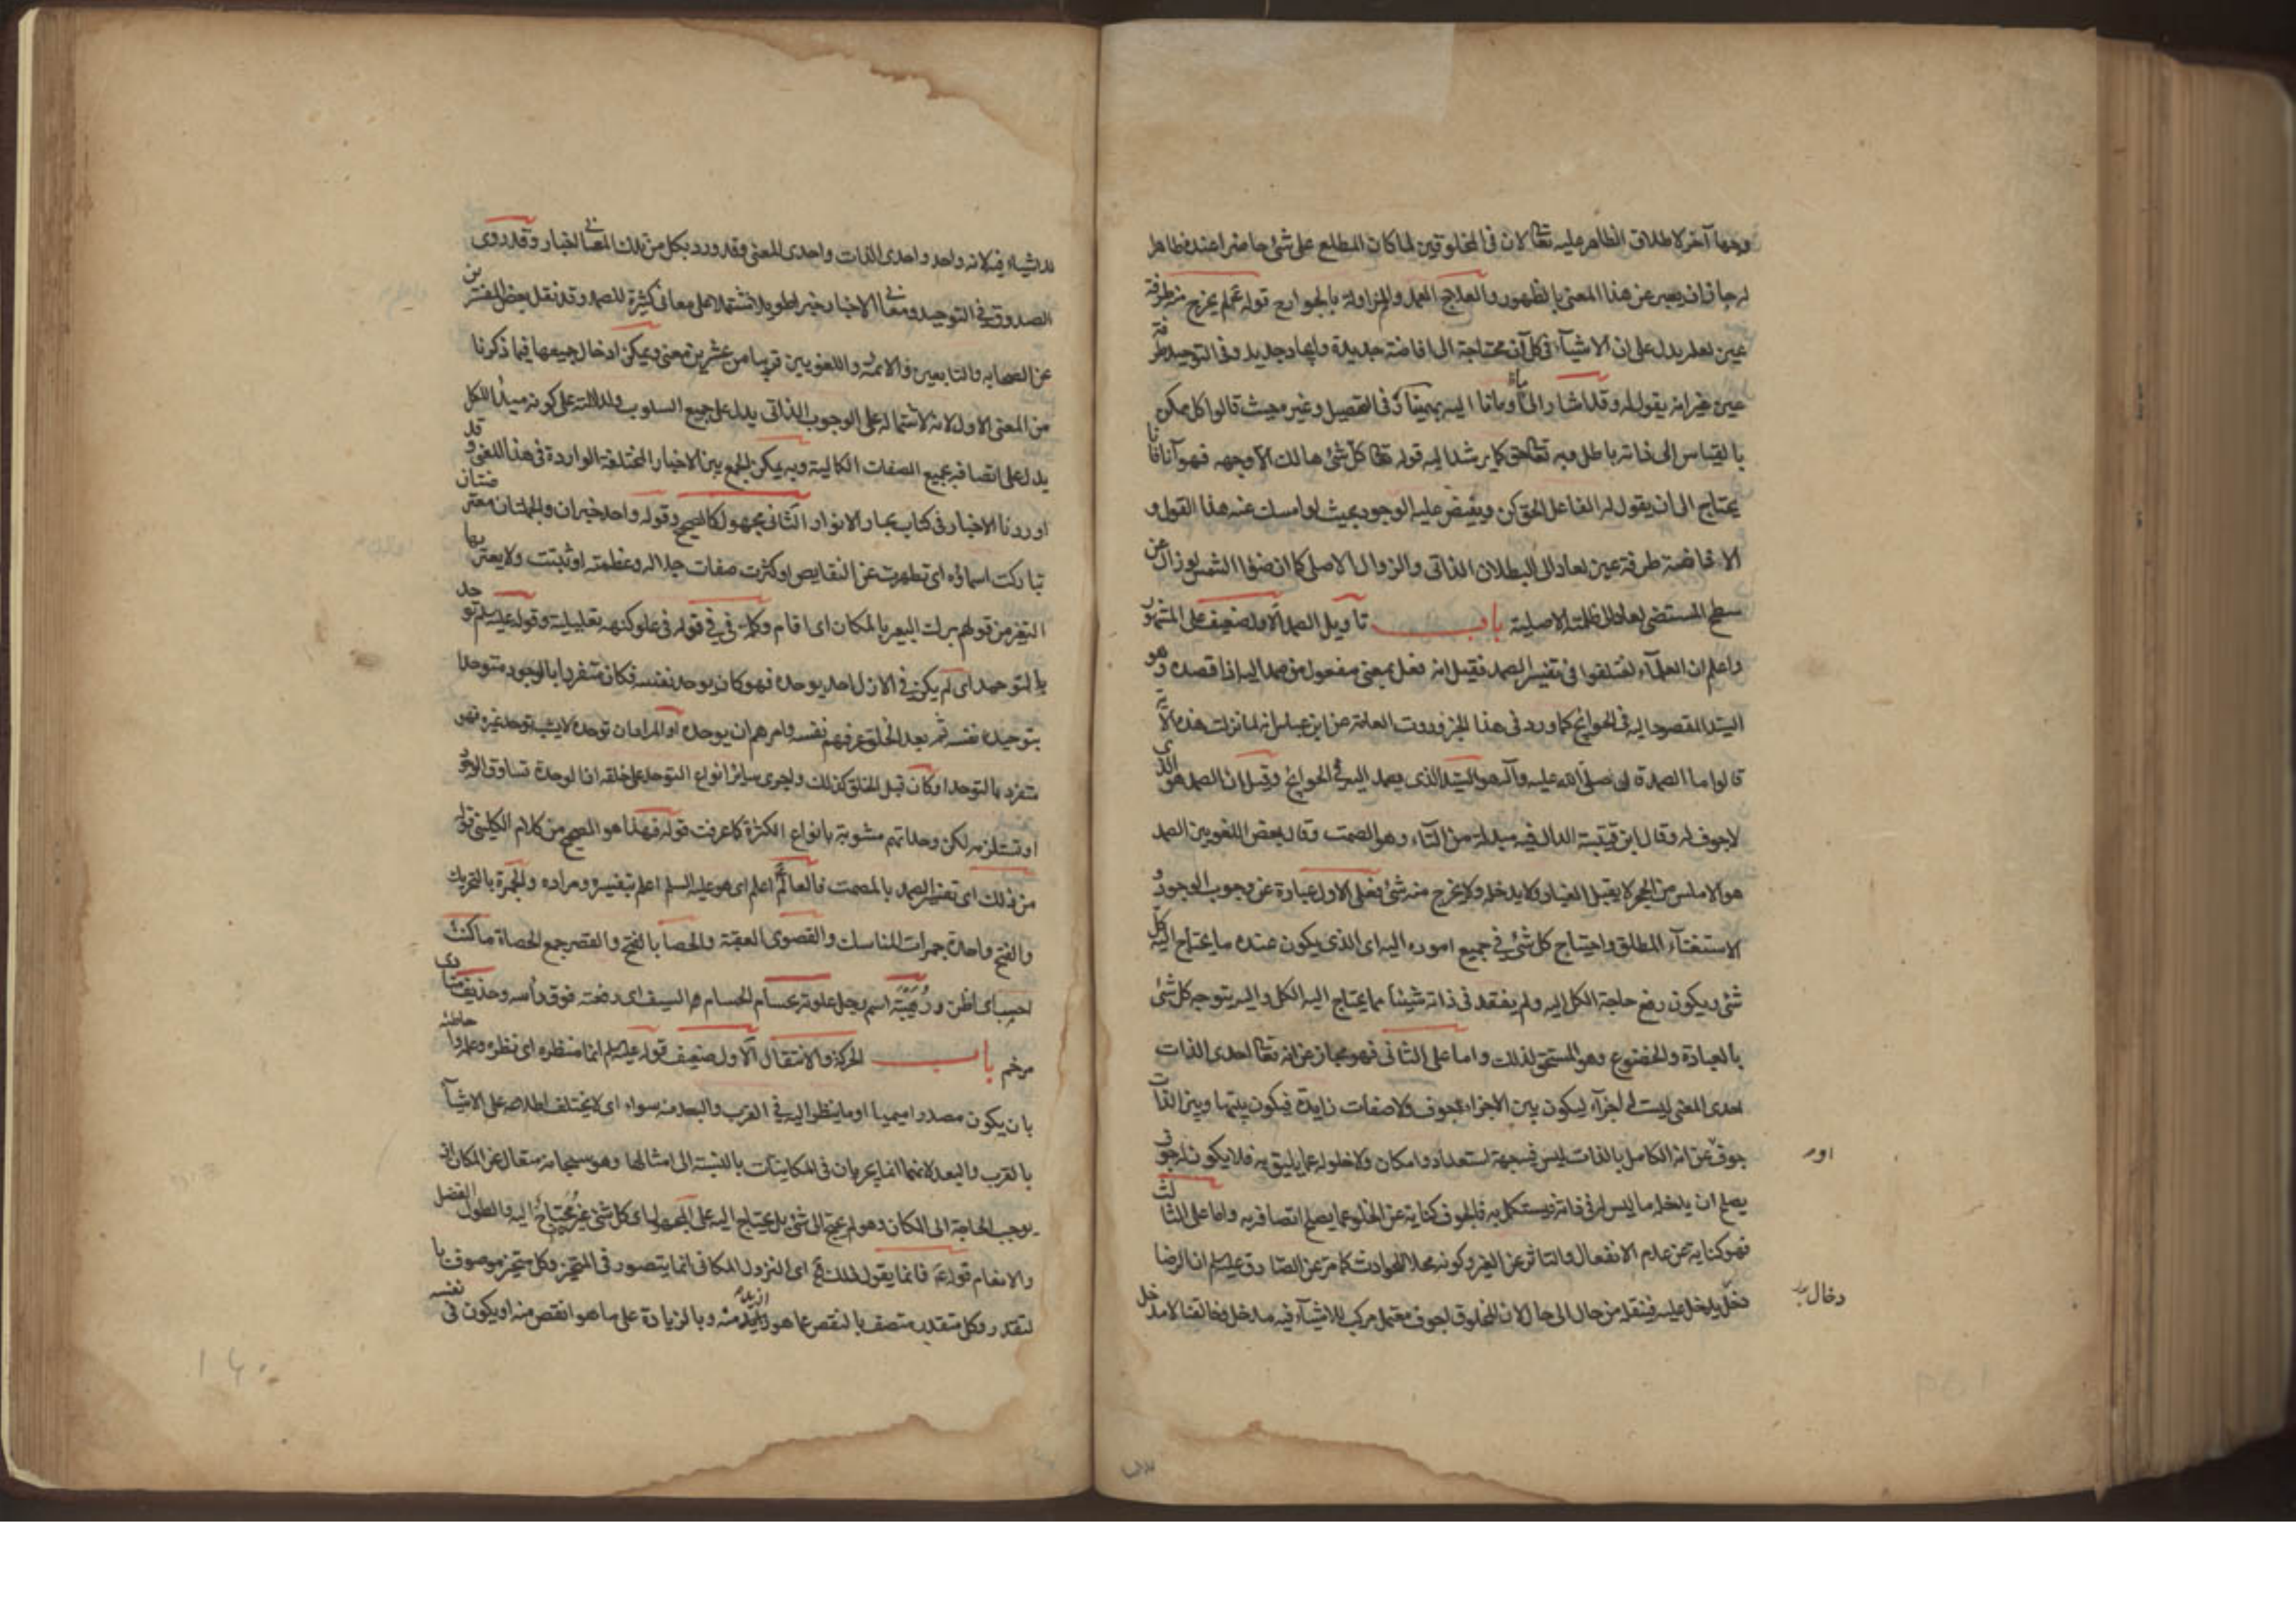 وجها آخر لاطلاق الظاهر عليه تعالى لان في المخلوقين لما كان المطلع على شئ حاضرا عنده ظاهرا
له جاز ان يعبر عن هذا المعنى بالظهور والعلاج العمل والمزاولة بالجوارح قوله ع لم يخرج منه طرفة
عين لعله يدل على ان الاشياء في كل آن محتاجة الى افاضة جديدة وايجاد جديد وفي التوحيد طرفة
عين غير انه يقول له وقد اشار الى ما اومأنا اليه بهمنيار في التحصيل وغيره حيث قالوا كل ممكن
بالقياس الى ذاته باطل وبه تعالى حق كما يرشد اليه قوله تعالى كل شئ هالك الا وجهه فهو آنا فآنا
يحتاج الى ان يقول له الفاعل الحق كن ويفيض عليه الوجود بحيث لو امسك عنه هذا القول و
الافاضة طرفة عين لعاد الى البطلان الذاتي والزوال الاصلي كما ان ضوء الشمس لو زال عن
سطح المستضئ لعاد الى ظلمته الاصلية باب تأويل الصمد الاول ضعيف على المشهور
واعلم ان العلماء اختلفوا في تفسير الصمد فقيل انه فعل بمعنى مفعول من صمد اليه اذا قصده وهو
السيد المقصود اليه في الحوائج كما ورد في هذا الخبر وروت العامة عن ابن عباس انه لما نزلت هذه الآية
قالوا ما الصمد قال صلى الله عليه وآله هو السيد الذي يصمد اليه في الحوائج وقيل ان الصمد هو الذي
لا جوف له وقال ابن قتيبة الدال فيه مبدلة من التاء وهو الصمت وقال بعض اللغويين الصمد
هو الاملس من الحجر لا يقبل الغبار ولا يدخله ولا يخرج منه شئ فعلى الاول عبارة عن وجوب الوجود و
الاستغناء المطلق واحتياج كل شئ في جميع اموره اليه اى الذي يكون عنده ما يحتاج اليه كل
شئ ويكون رفع حاجة الكل اليه ولم يفقد في ذاته شيئا مما يحتاج اليه الكل واليه يتوجه كل شئ
بالعبادة والخضوع وهو المستحق لذلك واما على الثاني فهو مجاز عن انه تعالى احدى الذات
احدى المعنى ليست له اجزاء ليكون بين الاجزاء جوف ولا صفات زايدة فيكون بينها وبين الذات
جوف او عن انه الكامل بالذات ليس فيه جهة استعداد وامكان ولا خلو له عما يليق به فلا يكون له جوف
يصلح ان يدخله ما ليس له في ذاته فيستكمل به فالجوف كناية عن الخلو عما يصلح اتصافه به واما على الثالث
فهو كناية عن عدم الانفعال والتأثر عن الغير وكونه محلا للحوادث كما مر عن الصادق عليه السلم ان الرضا
دخال يدخل عليه فينقله من حال الى حال لان المخلوق اجوف معتمل مركب للاشياء فيه مدخل وخالقنا لا مدخل
اور
دخال
للاشياء فيه لانه واحد واحدى الذات واحدى المعنى وقد ورد بكل من تلك المعاني اخبار وقد روى
الصدوق في التوحيد ومعاني الاخبار خبرا طويلا مشتملا على معان كثيرة للصمد وقد نقل بعض المفسرين
عن الصحابه والتابعين والائمة واللغويين قريبا من عشرين معنى ويمكن ادخال جميعها فيما ذكرنا
من المعنى الاول لانه لاشتماله على الوجوب الذاتي يدل على جميع السلوب ولدلالته على كونه مبدأ للكل
يدل على اتصافه بجميع الصفات الكمالية وبه يمكن الجمع بين الاخبار المختلفة الواردة في هذا المعنى وقد
اوردنا الاخبار في كتاب بحار الانوار الثاني مجهول كالصحيح وقوله واحد خبران والجملتان معترضتان
تباركت اسماؤه اى تطهرت عن النقايص او كثرت صفات جلاله وعظمته او ثبتت ولا يعتريها
التغير من قولهم برك البعير بالمكان اى اقام وكلمة في في قوله في علو كنهه تعليلية وقوله عليه السلم توحد
بالتوحيد اى لم يكن في الازل احد يوحده فهو كان يوحد نفسه فكان متفردا بالوجود متوحدا
بتوحيده نفسه ثم بعد الخلق عرفهم نفسه وامرهم ان يوحدوه او المراد ان توحده لا يشبه توحد غيره فهو
متفرد بالتوحد او كان قبل الخلق كذلك واجرى ساير انواع التوحد على خلقه اذا لوحدة تساوق الوجود
او تستلزمه لكن وحداتهم مشوبة بانواع الكثرة كما عرفت قوله فهذا هو الصحيح من كلام الكليني قوله
من ذلك اى تفسير الصمد بالمصمت فالعالم اعلم اى هو عليه السلم اعلم بتفسيره ومراده والجمرة بالتحريك
والفتح واحدة جمرات المناسك والقصوى العقبة والحصا بالفتح والقصر جمع الحصاة ما كنت
احسب اى اظن ورهجية اسم رجل علوته بحسام الحسام هو السيف اى رفعته فوق رأسه وحذيف منادى
مرخم باب الحركة والانتقال الاول ضعيف قوله عليه السلم انما منظره اى نظره وعلمه واحاطته
بان يكون مصدرا ميميا او ما ينظر اليه في القرب والبعد منه سواء اى لا يختلف اطلاعه على الاشياء
بالقرب والبعد لانهما انما يجريان في المكانيات بالنسبة الى امثالها وهو سبحانه متعال عن المكان اذ
يوجب الحاجة الى المكان وهو لم يحتج الى شئ بل يحتاج اليه على المجهول اى كل شئ غيره محتاج اليه والطول الفضل
والانعام قوله ع فانما يقول ذلك اى النزول المكاني انما يتصور في المتحيز وكل متحيز موصوف با
لتقدر وكل متقدر متصف بالنقص عما هو ازيد منه وبالزيادة على ما هو انقص منه او يكون في نفسه